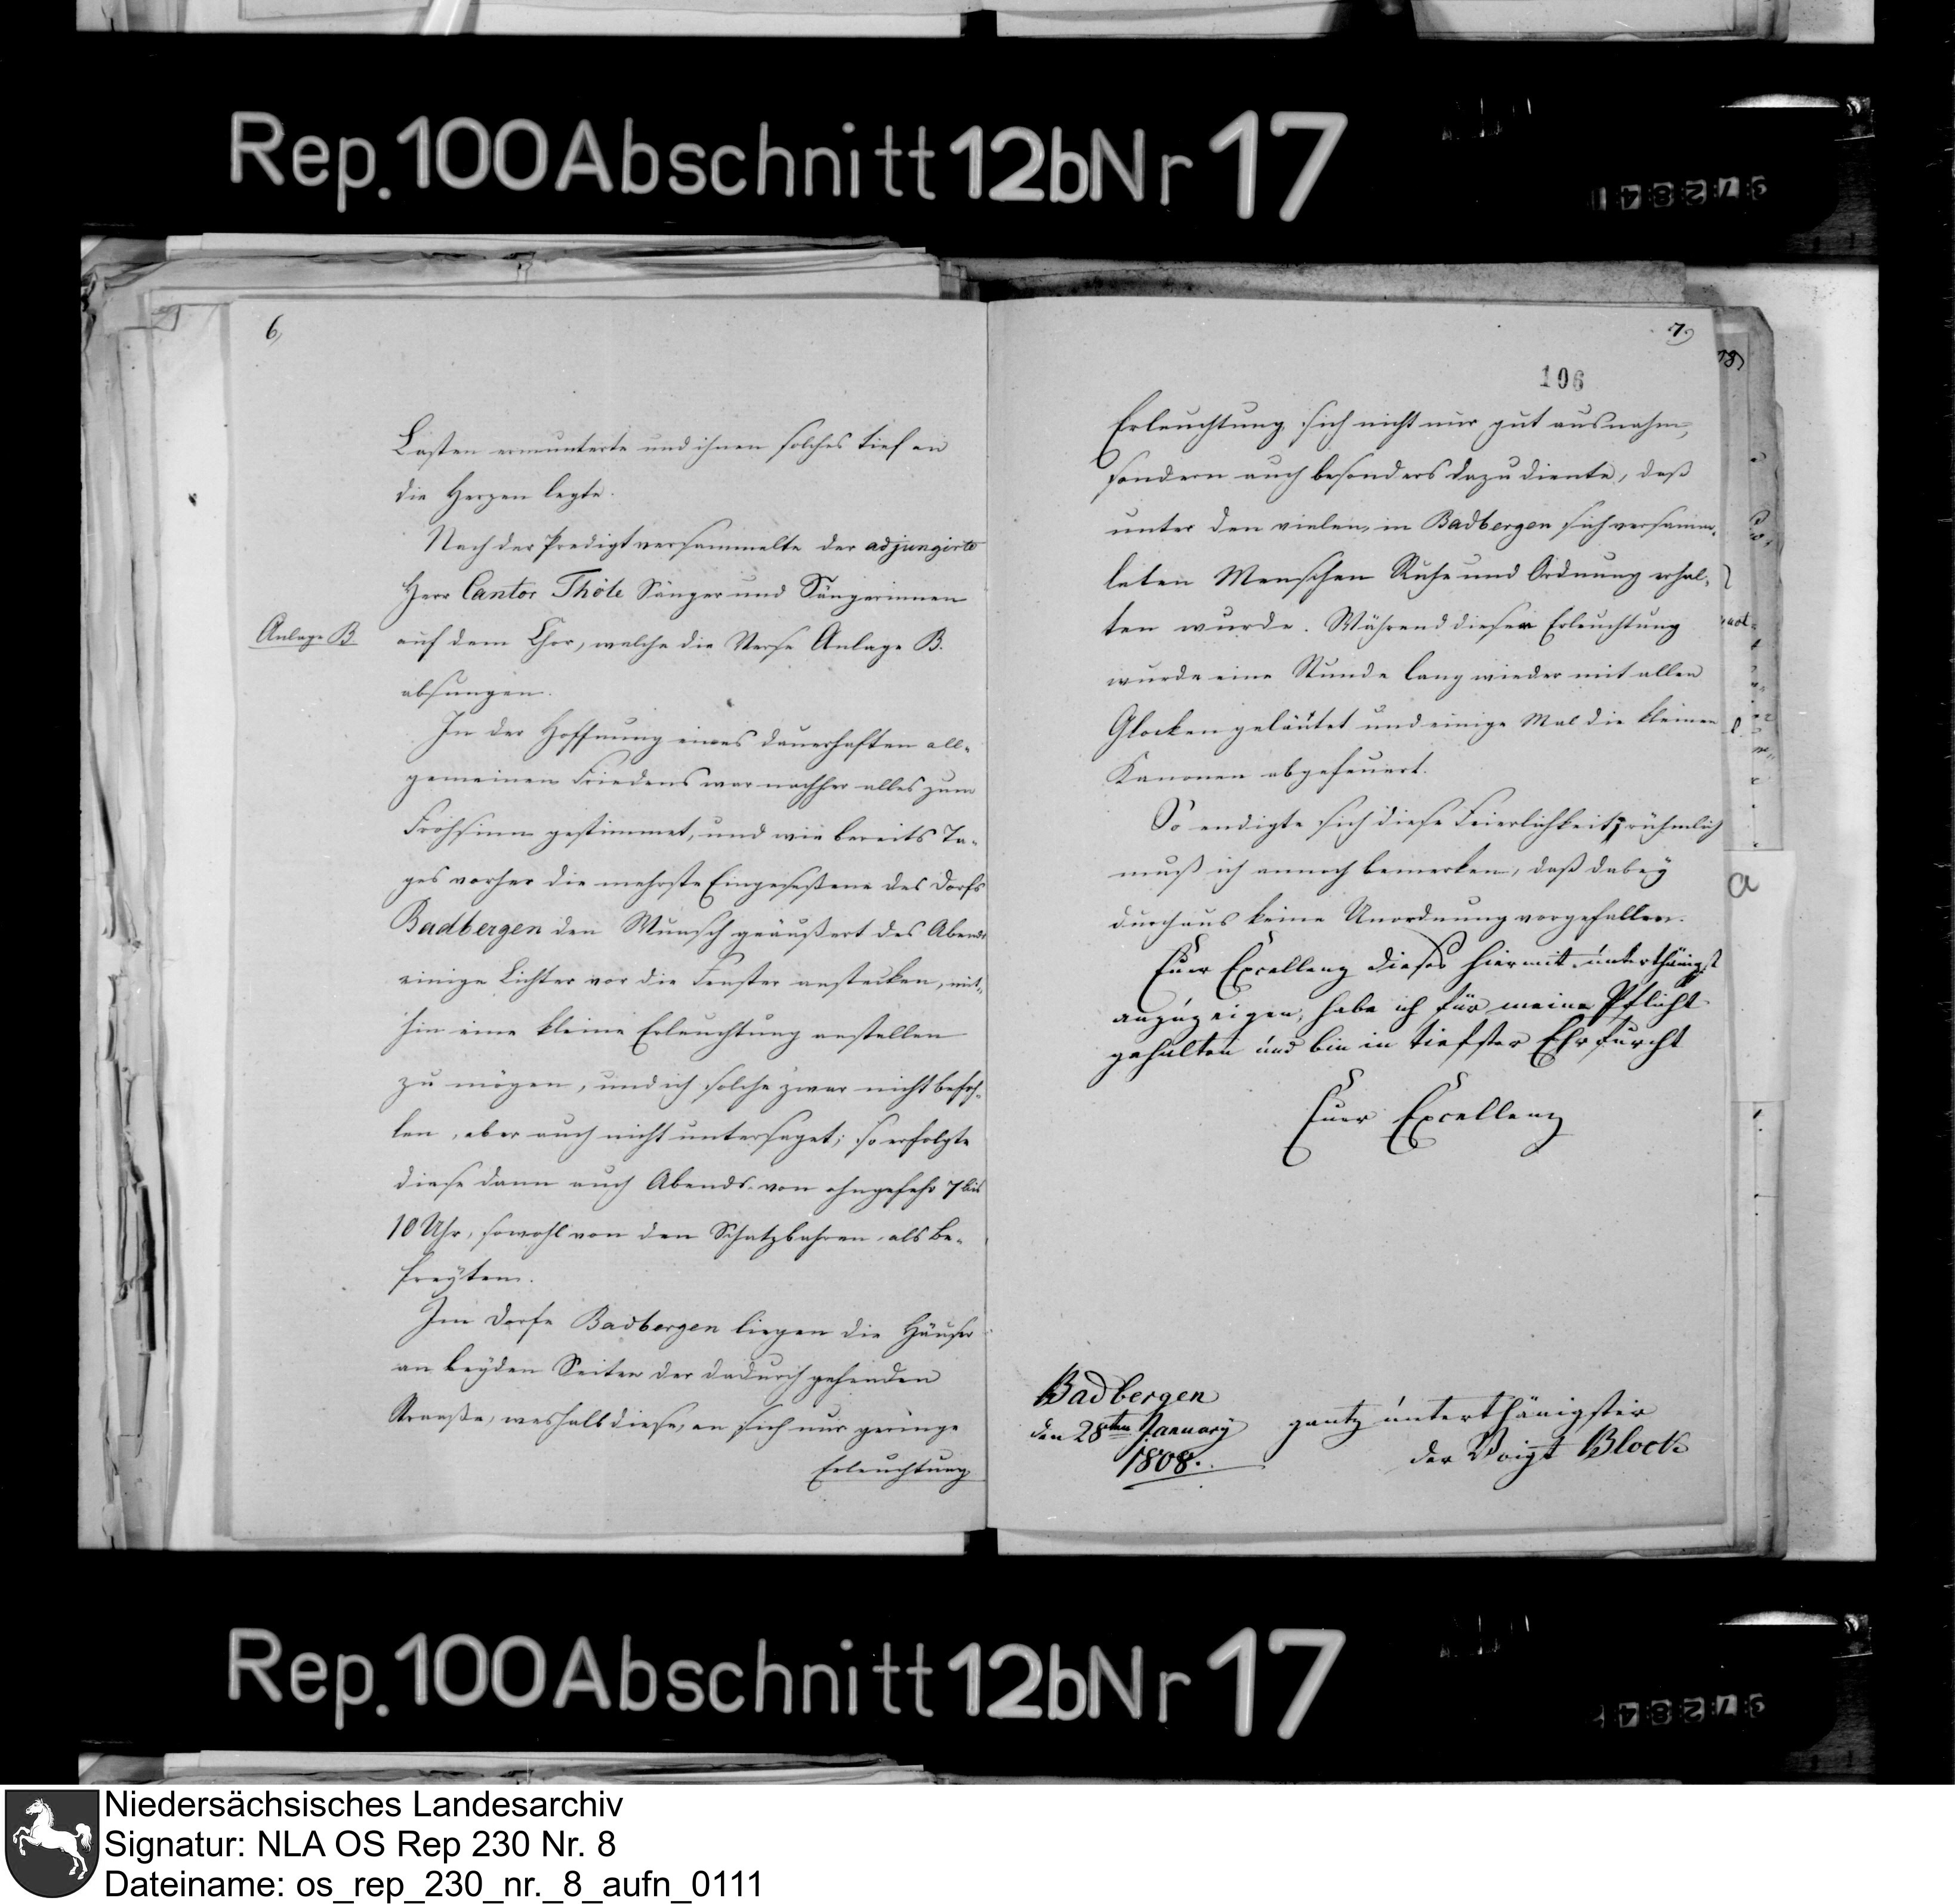 Rep. 100 Abschnitt 12b Nr 17
6,
Lasten ermunterte und ihnen solches tief an
die Herzen legte.
Nach der Predigt versammelte der adjungirte
Herr Cantor Thöle Sänger und Sängerinnen
Anlage B.
auf dem Chor, welche die Verse Anlage B.
absungen.
In der Hoffnung eines dauerhaften all-
gemeinen Friedens war nachher alles zum
Frohsinn gestimmet, und wie bereits Ta-
ges vorher die mehrste Eingeseßene des Dorfs
Badbergen den Wunsch geäußert des Abends
einige Lichter vor die Fenster anstecken, mit-
hin eine kleine Erleuchtung anstellen
zu mögen, und ich solche zwar nicht befoh-
len, aber auch nicht untersaget; so erfolgte
diese dann auch Abends von ohngefehr 7 bis
10 Uhr, sowohl von den Schatzbahren als Be-
freyten.
Im Dorfe Badbergen liegen die Häuser
an beyden Seiten der dadurch gehenden
Straaße, weshalb diese, an sich nur geringe
Erleuchtung
7,
106
Erleuchtung sich nicht nur gut ausnahm,
sondern auch besonders dazu diente, daß
unter den vielen, in Badbergen sich versamm-
leten Menschen Ruhe und Ordnung erhal-
ten wurde. Während dieser Erleuchtung
wurde eine Stunde lang wieder mit allen
Glocken geläutet und einige Mal die kleinen
Kanonen abgefeuert.
So endigte sich diese Feierlichkeit; rühmlich
muß ich annoch bemerken, daß dabey
durchaus keine Unordnung vorgefallen.
Euer Excellenz dieses hiermit unterthänigst
anzuzeigen, habe ich für meine Pflicht
gehalten und bin in tiefster Ehrfurcht
Euer Excellenz
Badbergen
den 28ten January
1808.
gantz unterthänigster
der Voigt Block
a
Rep. 100 Abschnitt 12b Nr 17
Niedersächsisches Landesarchiv
Signatur: NLA OS Rep 230 Nr. 8
Dateiname: os_rep_230_nr._8_aufn_0111